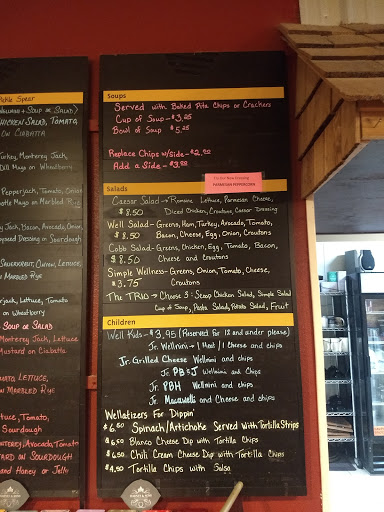 Pickle Spear
Chicken Salad, Tomato,
on Ciabatta
Turkey, Monterey Jack,
Dill Mayo on Wheatberry
Pepperjack, Tomato, Onion
Mayo on Marbled Rye
Jack, Bacon, Avocado, Onion,
Dressing on Sourdough
Sauerkraut, Onion, Lettuce,
on Marbled Rye
Lettuce, Tomato
on Wheatberry
Soup or Salad
Monterey Jack, Lettuce
Mustard on Ciabatta
Tomato, Lettuce,
on Marbled Rye
Lettuce, Tomato,
Sourdough
Monterey, Avocado, Tomato
Mustard on Sourdough
and Honey or Jelly
Soups
Served with Baked Pita Chips or Crackers
Cup of Soup - $3.95
Bowl of Soup - $5.25
Replace Chips w/side - $2.00
Add a Side - $3.00
PARMESAN PEPPERCORN
Salads
Caesar Salad - Romaine Lettuce, Parmesan Cheese,
$8.50 Diced Chicken, Croutons, Caesar Dressing
Well Salad - Greens, Ham, Turkey, Avocado, Tomato,
$8.50 Bacon, Cheese, Egg, Onion, Croutons
Cobb Salad - Greens, Chicken, Egg, Tomato, Bacon,
$8.50 Cheese and Croutons
Simple Wellness - Greens, Onion, Tomato, Cheese,
$3.75 Croutons
The TRIO - Choose 3: Scoop Chicken Salad, Simple Salad
Cup of Soup, Pasta Salad, Potato Salad, Fruit
Children
Well Kids - $3.95 (Reserved for 12 and under please)
Jr. Wellnini - 1 Meat / 1 Cheese and chips
Jr. Grilled Cheese Wellnini and chips
Jr. PB&J Wellnini and Chips
Jr. PBH Wellnini and chips
Jr. Macawells and Cheese and chips
Wellatizers For Dippin'
$6.50 Spinach/Artichoke Served with Tortilla Strips
$6.50 Blanco Cheese Dip with Tortilla Chips
$6.50 Chili Cream Cheese Dip with Tortilla Chips
$4.50 Tortilla Chips with Salsa